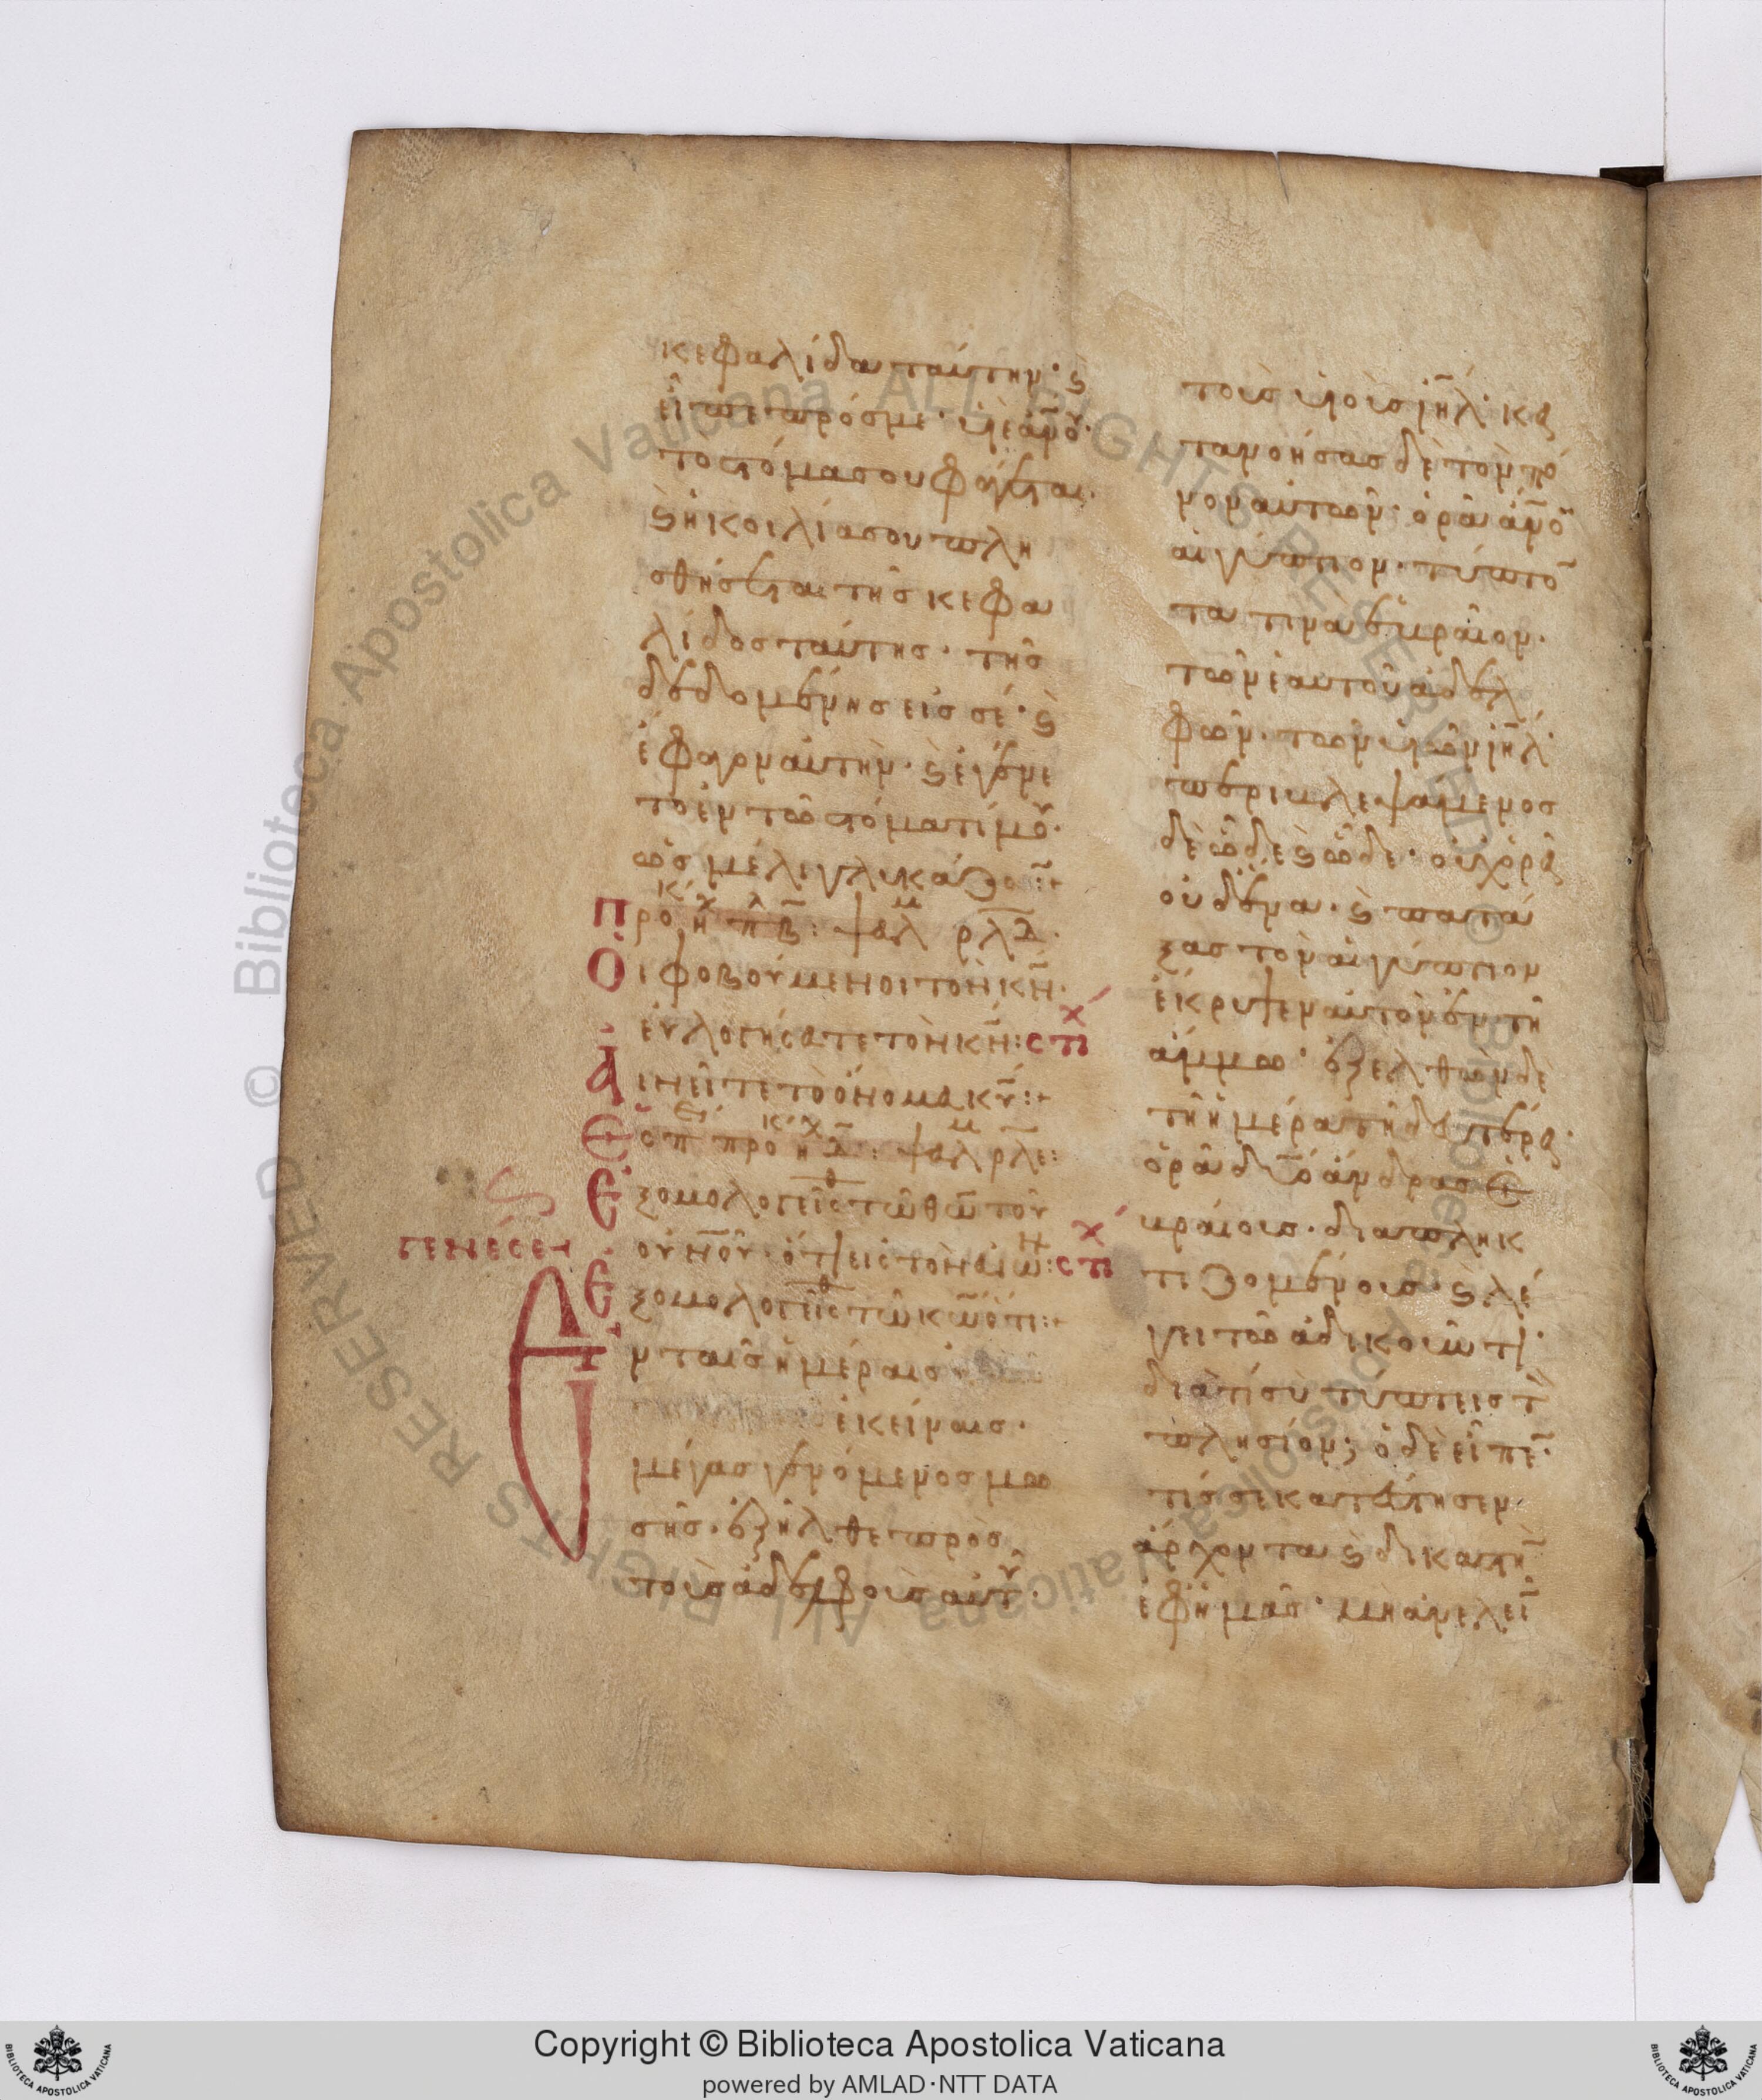 κεφαλίδα ταύτην· ϗ
εἶπε πρόσμε· υἱὲ ἀν̅ου·
το στόμα σου φάγεται·
ϗ ἡ κοιλία σου πλη
σθήσεται τῆς κεφα
λίδος ταύτης· τῆς
δεδομένης εἰς σέ· ϗ
ἔφαγον αὐτὴν· ϗ ἐγένε
το ἐν τῶ στόματί μου·
ὡς μέλι γλυκάζον:+
Προκ ηχ πλ β: ψαλμ ρλδ·
Οἱ φοβούμενοι τὸν κν̅·
εὐλογήσατε τὸν κν̅: στιχ
Αἰνεῖτε τὸ ὄνομα κυ̅:+
Ἑσπ προκ ηχ δ: ψαλμ ρλε:
Ἐξομολογεῖσθ τῶ θω̅ τοῦ
οὐνοῦ· ὅτι εἰς τὸν αἰων: στιχ
Ἐξομολογεῖσθ τῶ κω̅ ὅτι:+
Γενέσεως
Ἐν ταῖς ἡμέραις
ἐκείναις·
μέγας γενόμενος μω
σῆς· ἐξῆλθε πρὸς
τοὺς ἀδελφοὺς αὐτοῦ·
τοὺς υἱοὺς ἰη̅λ· κα
τανοήσας δὲ τὸν πό
νον αὐτῶν· ὁρᾶ ἄν̅ον
αἰγύπτιον· τύπτον
τα τινα ἑβραῖον·
τῶν ἑαυτοῦ ἀδελ
φῶν· τῶν υἱῶν ἰη̅λ·
περιβλεψάμενος
δὲ ὧδε ϗ ὧδε· οὐχ ὁρᾶ
οὐδένα· ϗ πατά
ξας τὸν αἰγύπτιον
ἔκρυψεν αὐτὸν ἐν τῆ
ἄμμω· ἐξελθὼν δὲ
τῆ ἡμέρα τῆ δευτέρα·
ὁρᾶ δύο ἄνδρας ἑ
βραίους· διαπληκ
τιζομένους· ϗ λέ
γει τῶ ἀδικοῦντι·
διατί σὺ τύπτεις τὸν
πλησίον; ὁ δὲ εἶπεν·
τίς σε κατέστησεν
ἄρχοντα ϗ δικαστὴν
ἐφ ἡμᾶς· μὴ ἀνελεῖν